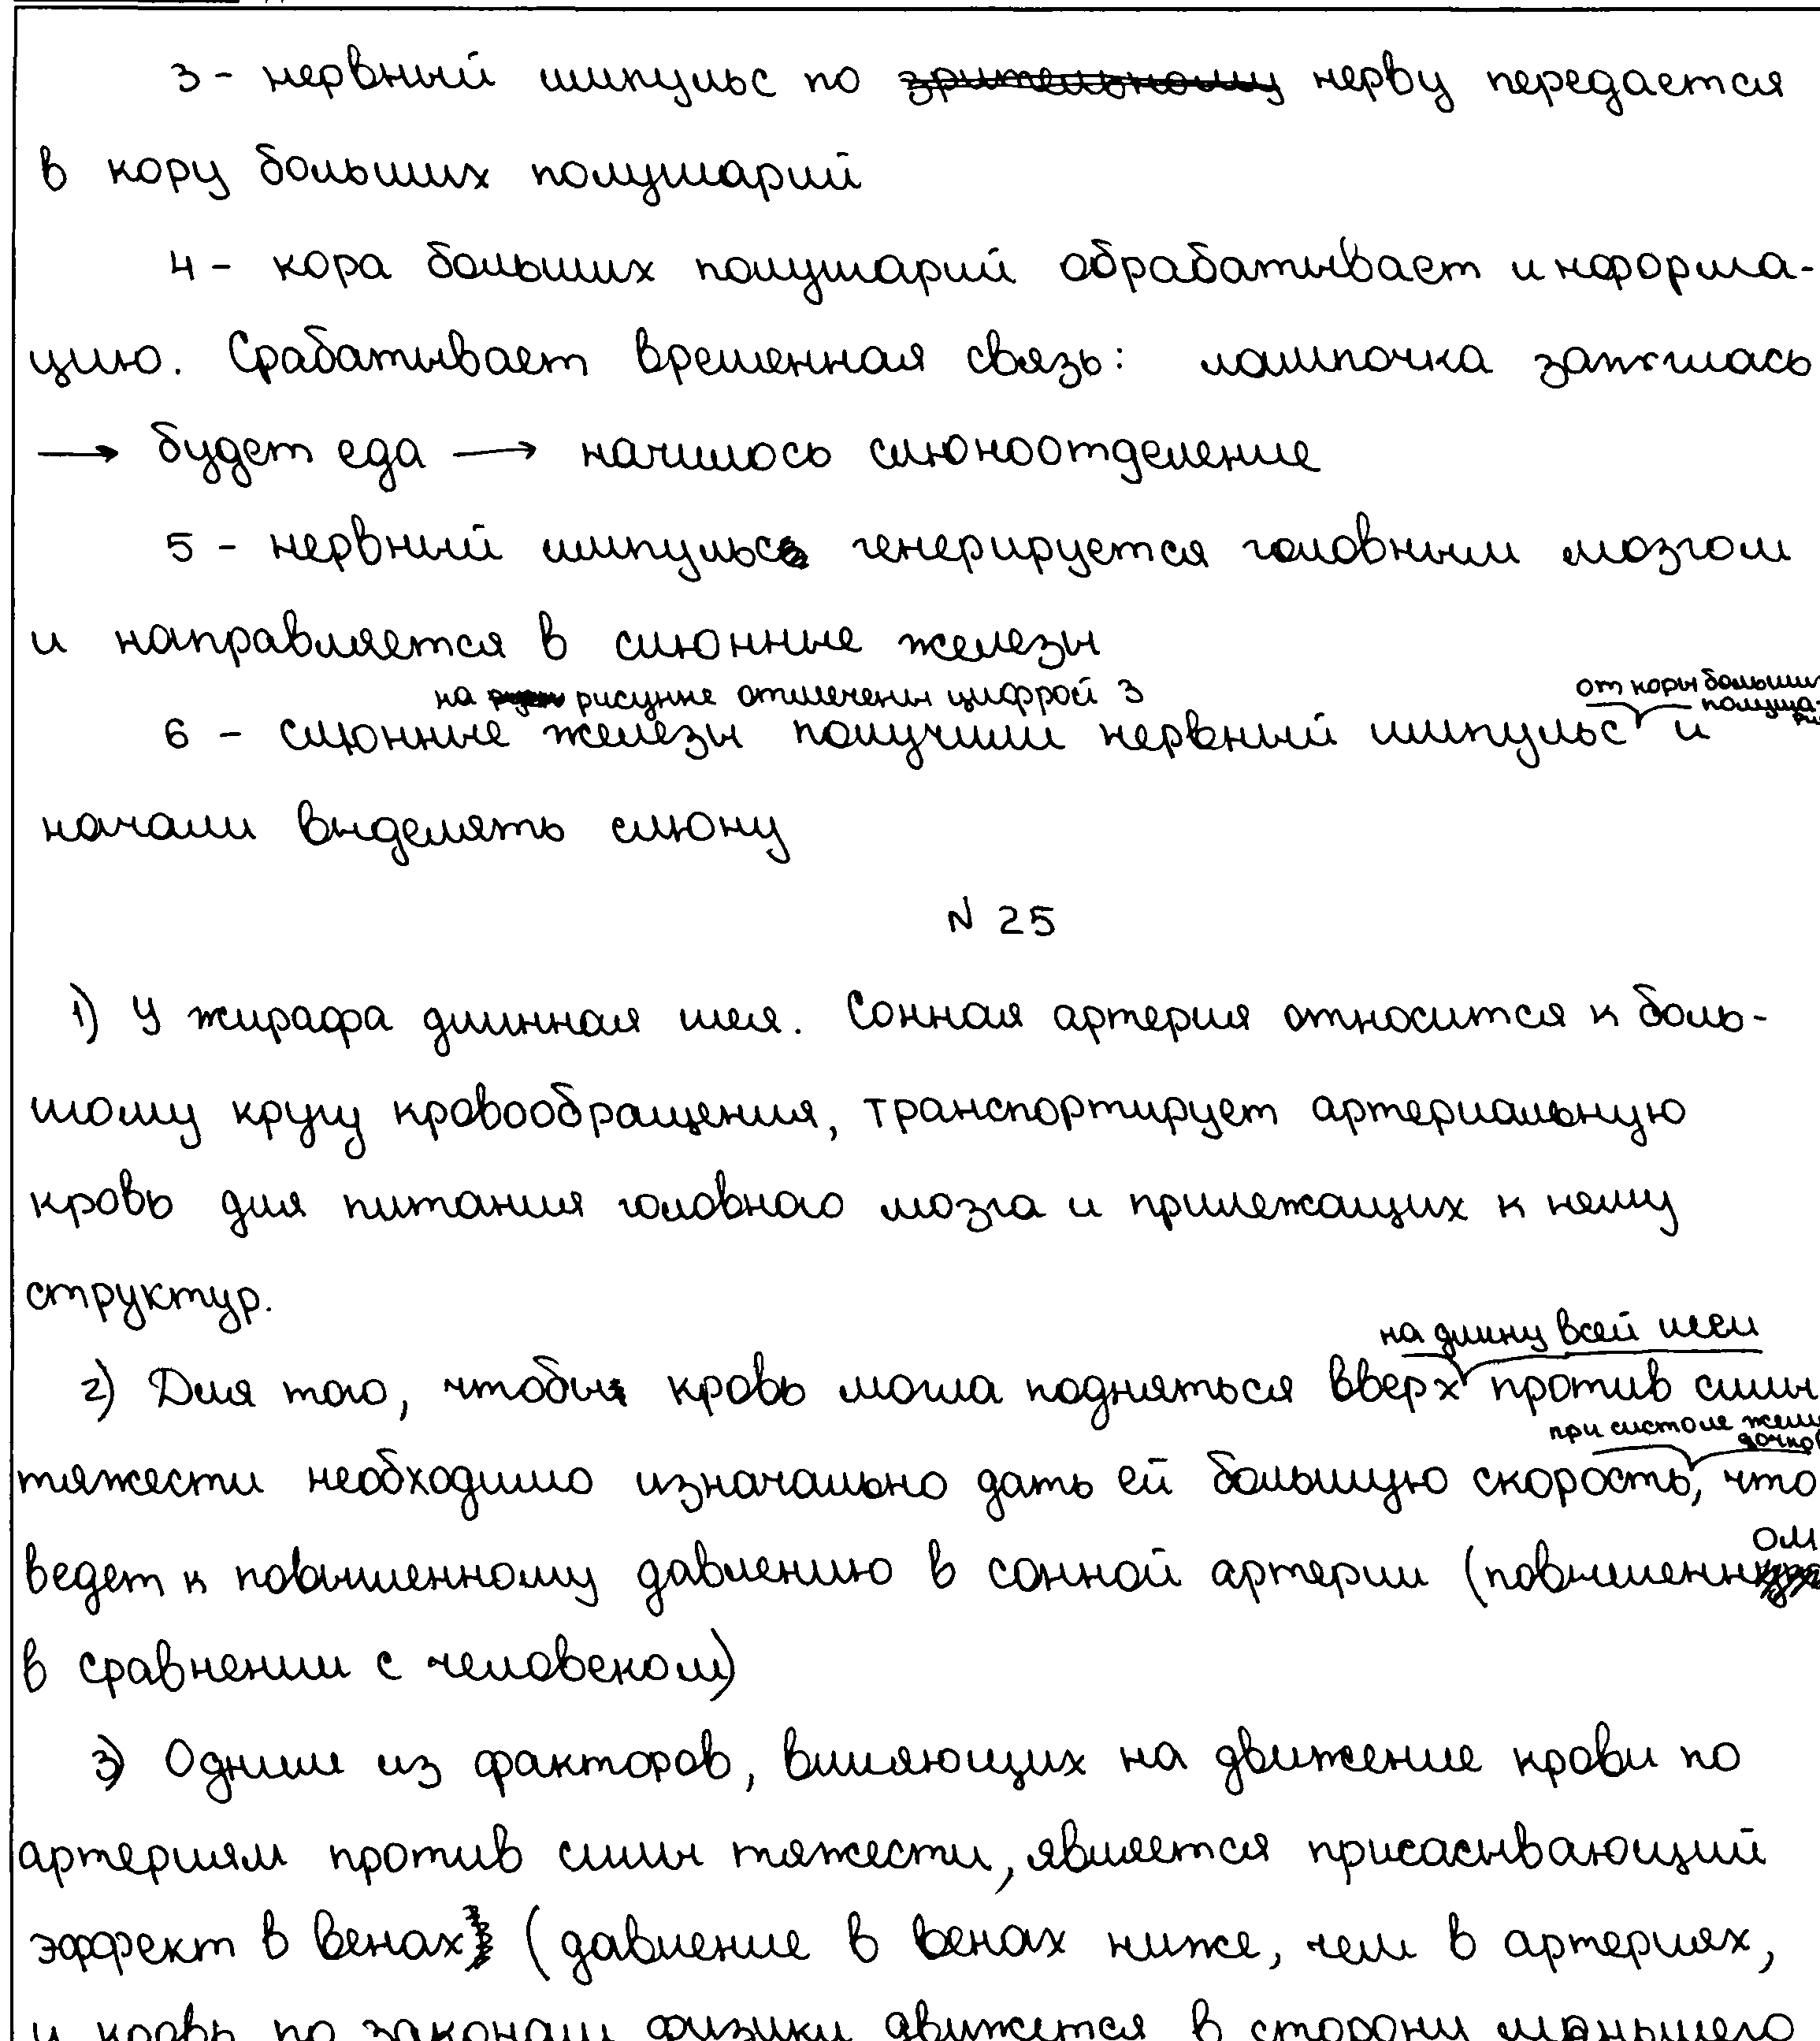 3 - нервный импульс по зрительному нерву передается
в кору больших полушарий
4 - кора больших полушарий обрабатывает информа-
цию. Срабатывает временная связь: лампочка зажглась
→ будет еда → началось слюноотделение
5 - нервный импульс генерируется головным мозгом
и направляется в слюнные железы
на рисунке отмечены цифрой 3
от коры больших
полуша-
рий
6 - слюнные железы получили нервный импульс и
начали выделять слюну
N 25
1) У жирафа длинная шея. Сонная артерия относится к боль-
шому кругу кровообращения, транспортирует артериальную
кровь для питания головного мозга и прилежащих к нему
структур.
на длину всей шеи
2) Для того, чтобы кровь могла подняться вверх против силы
при систоле желу
дочков
тяжести необходимо изначально дать ей большую скорость, что
ом
ведет к повышенному давлению в сонной артерии (повышенн
в сравнении с человеком)
3) Одним из факторов, влияющих на движение крови по
артериям против силы тяжести, является присасывающий
эффект в венах (давление в венах ниже, чем в артериях,
и кровь по законам физики движется в сторону меньшего